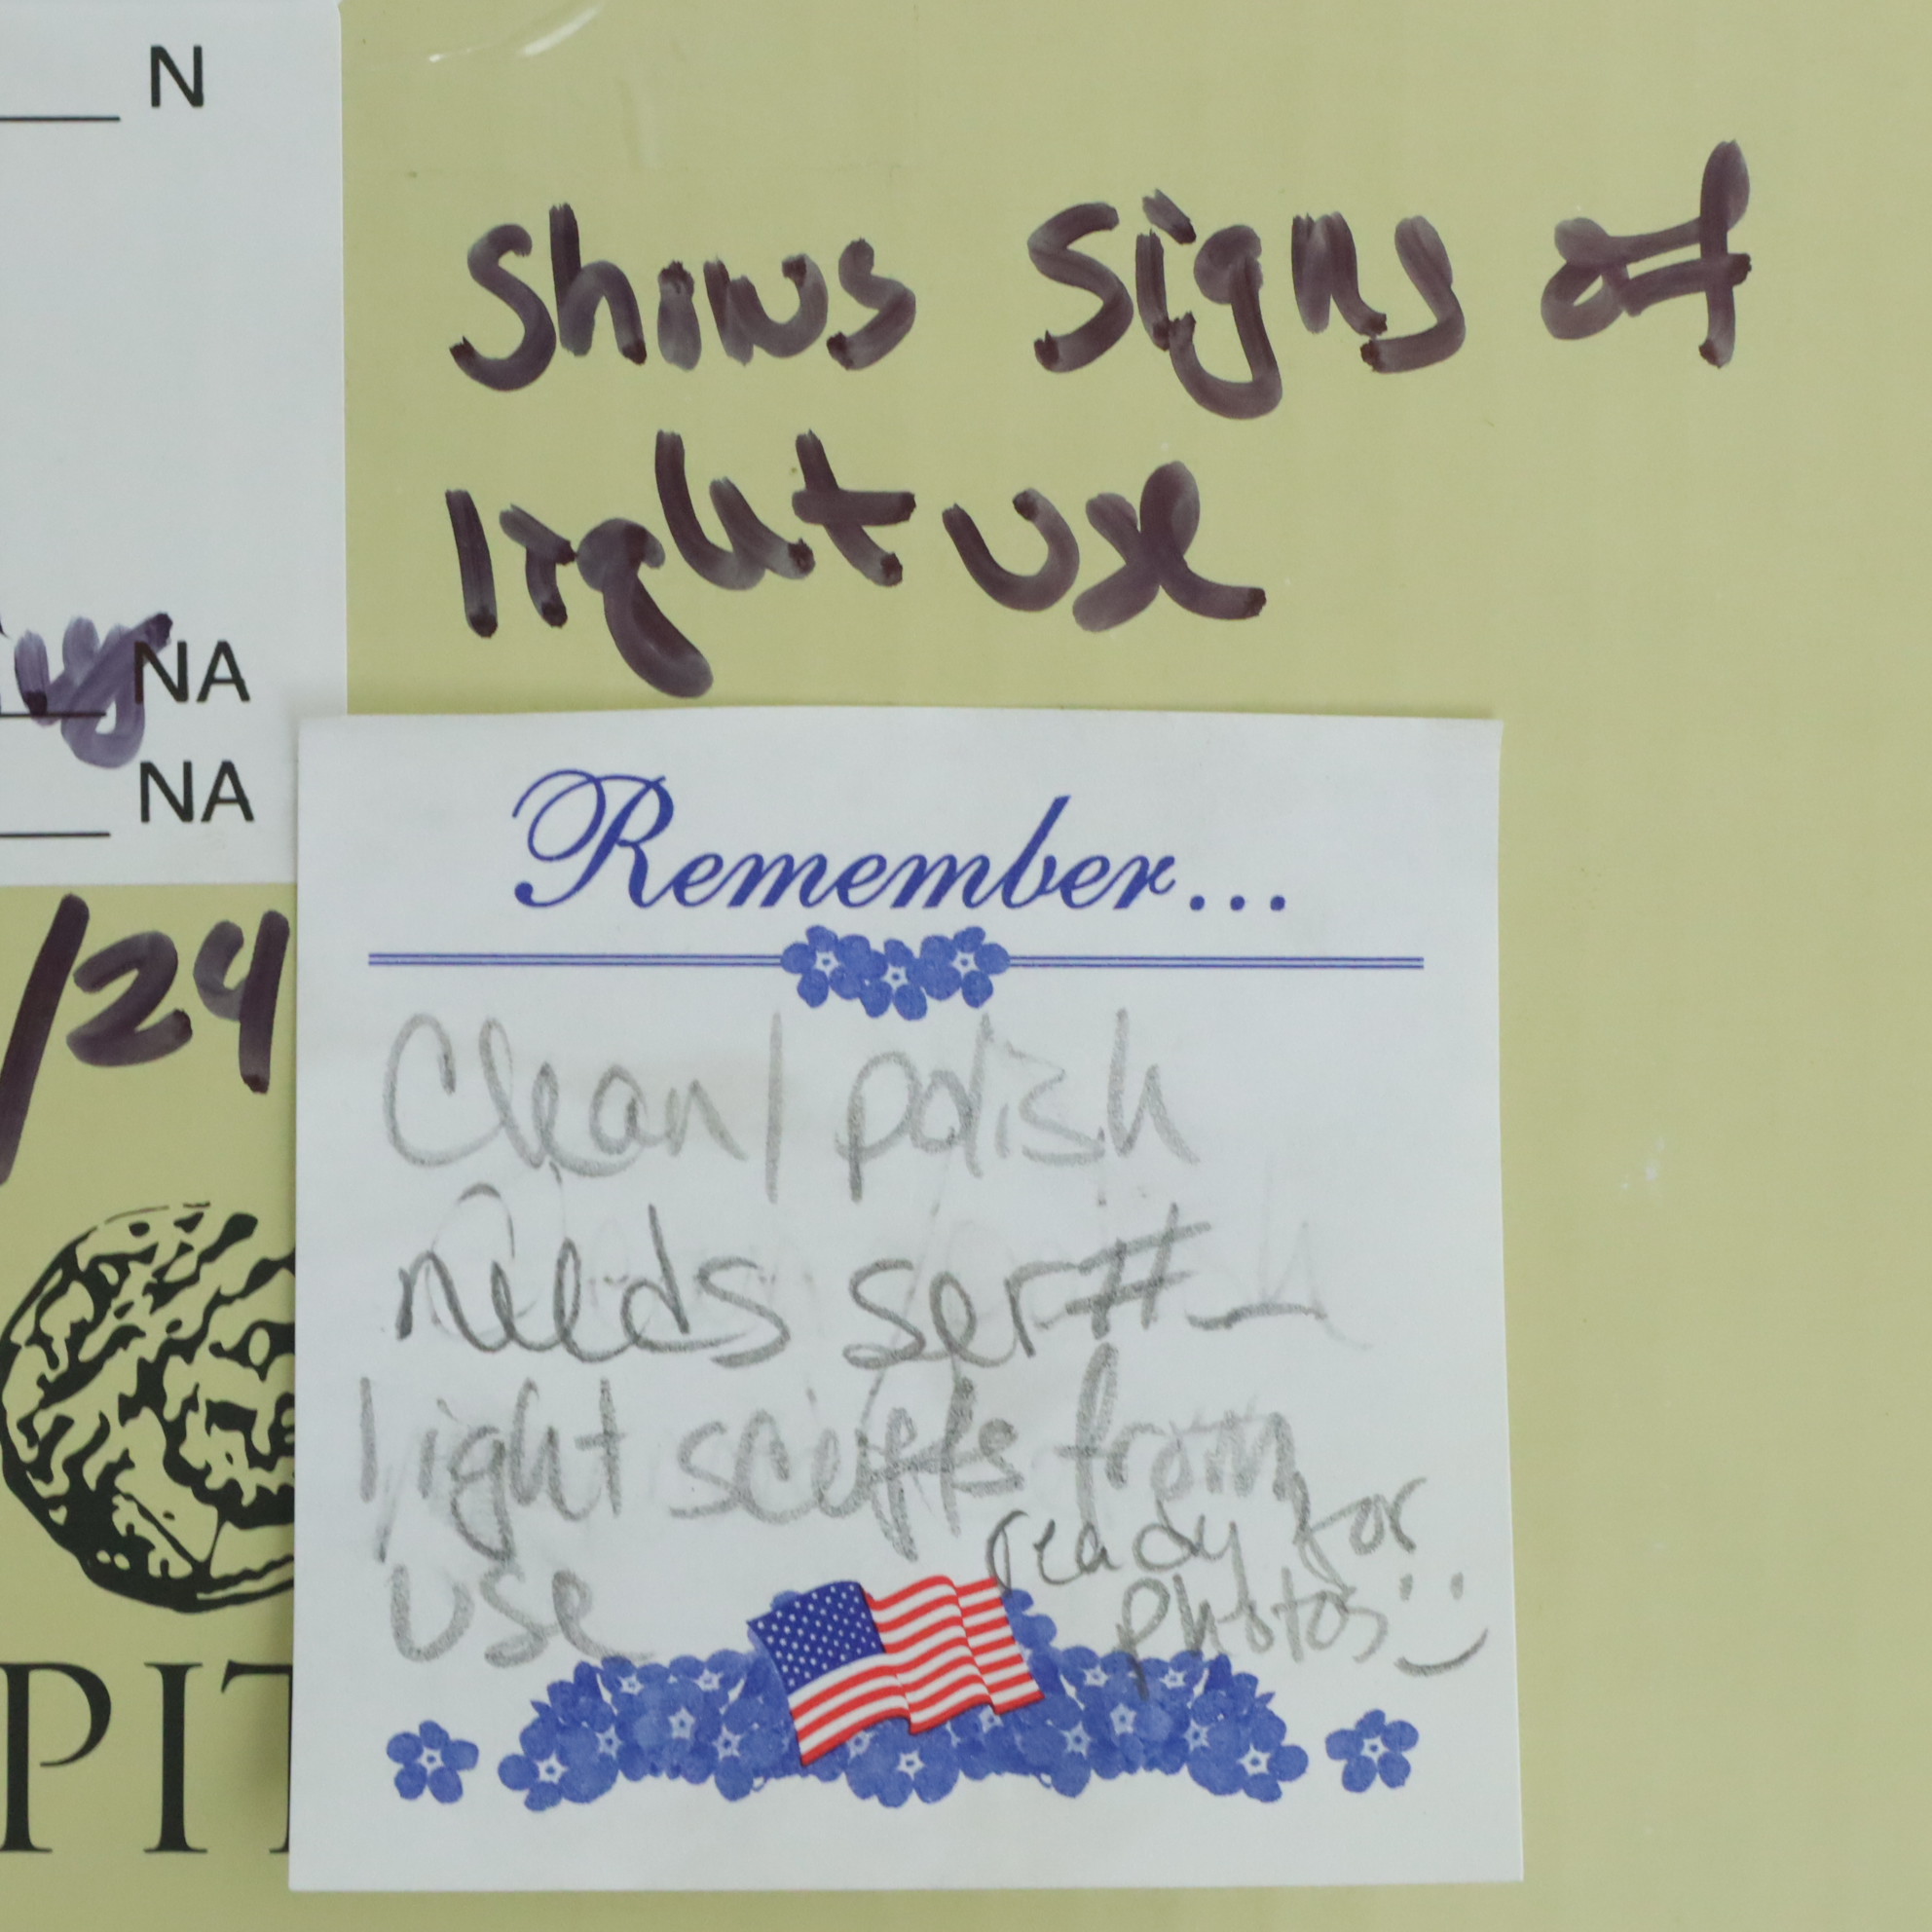 N
shows signs of
light use
NA
NA
Remember...
/24
Clean/polish
needs ser#_
light scuffs from
use
ready for
photos
PIT